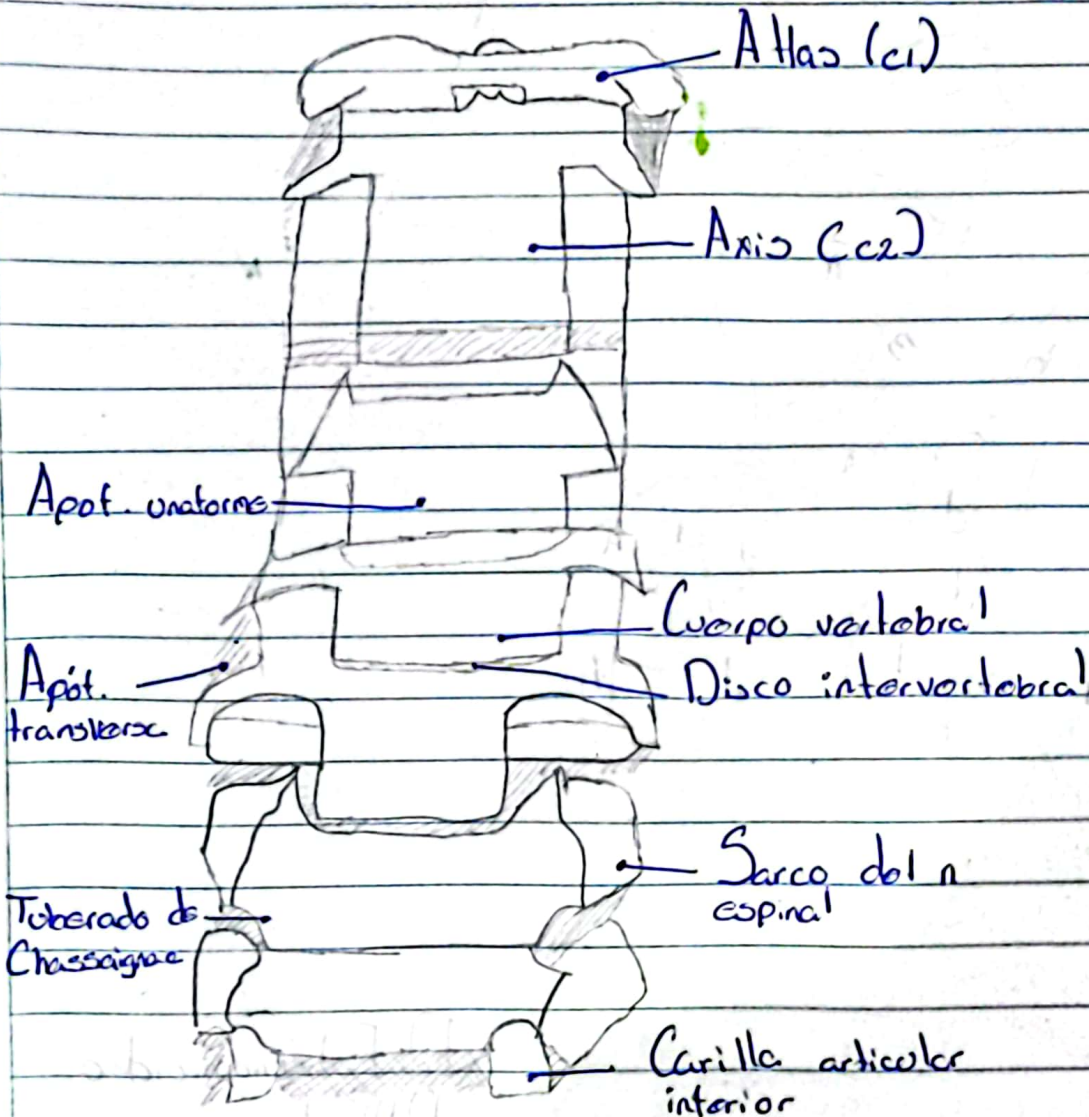 Atlas (c1)
Axis (c2)
Apof. unatorme
Cuerpo vertebral
Disco intervertebral
Apóf.
transversa
Surco del n
espinal
Tuberado de
Chassaignac
Carilla articular
inferior